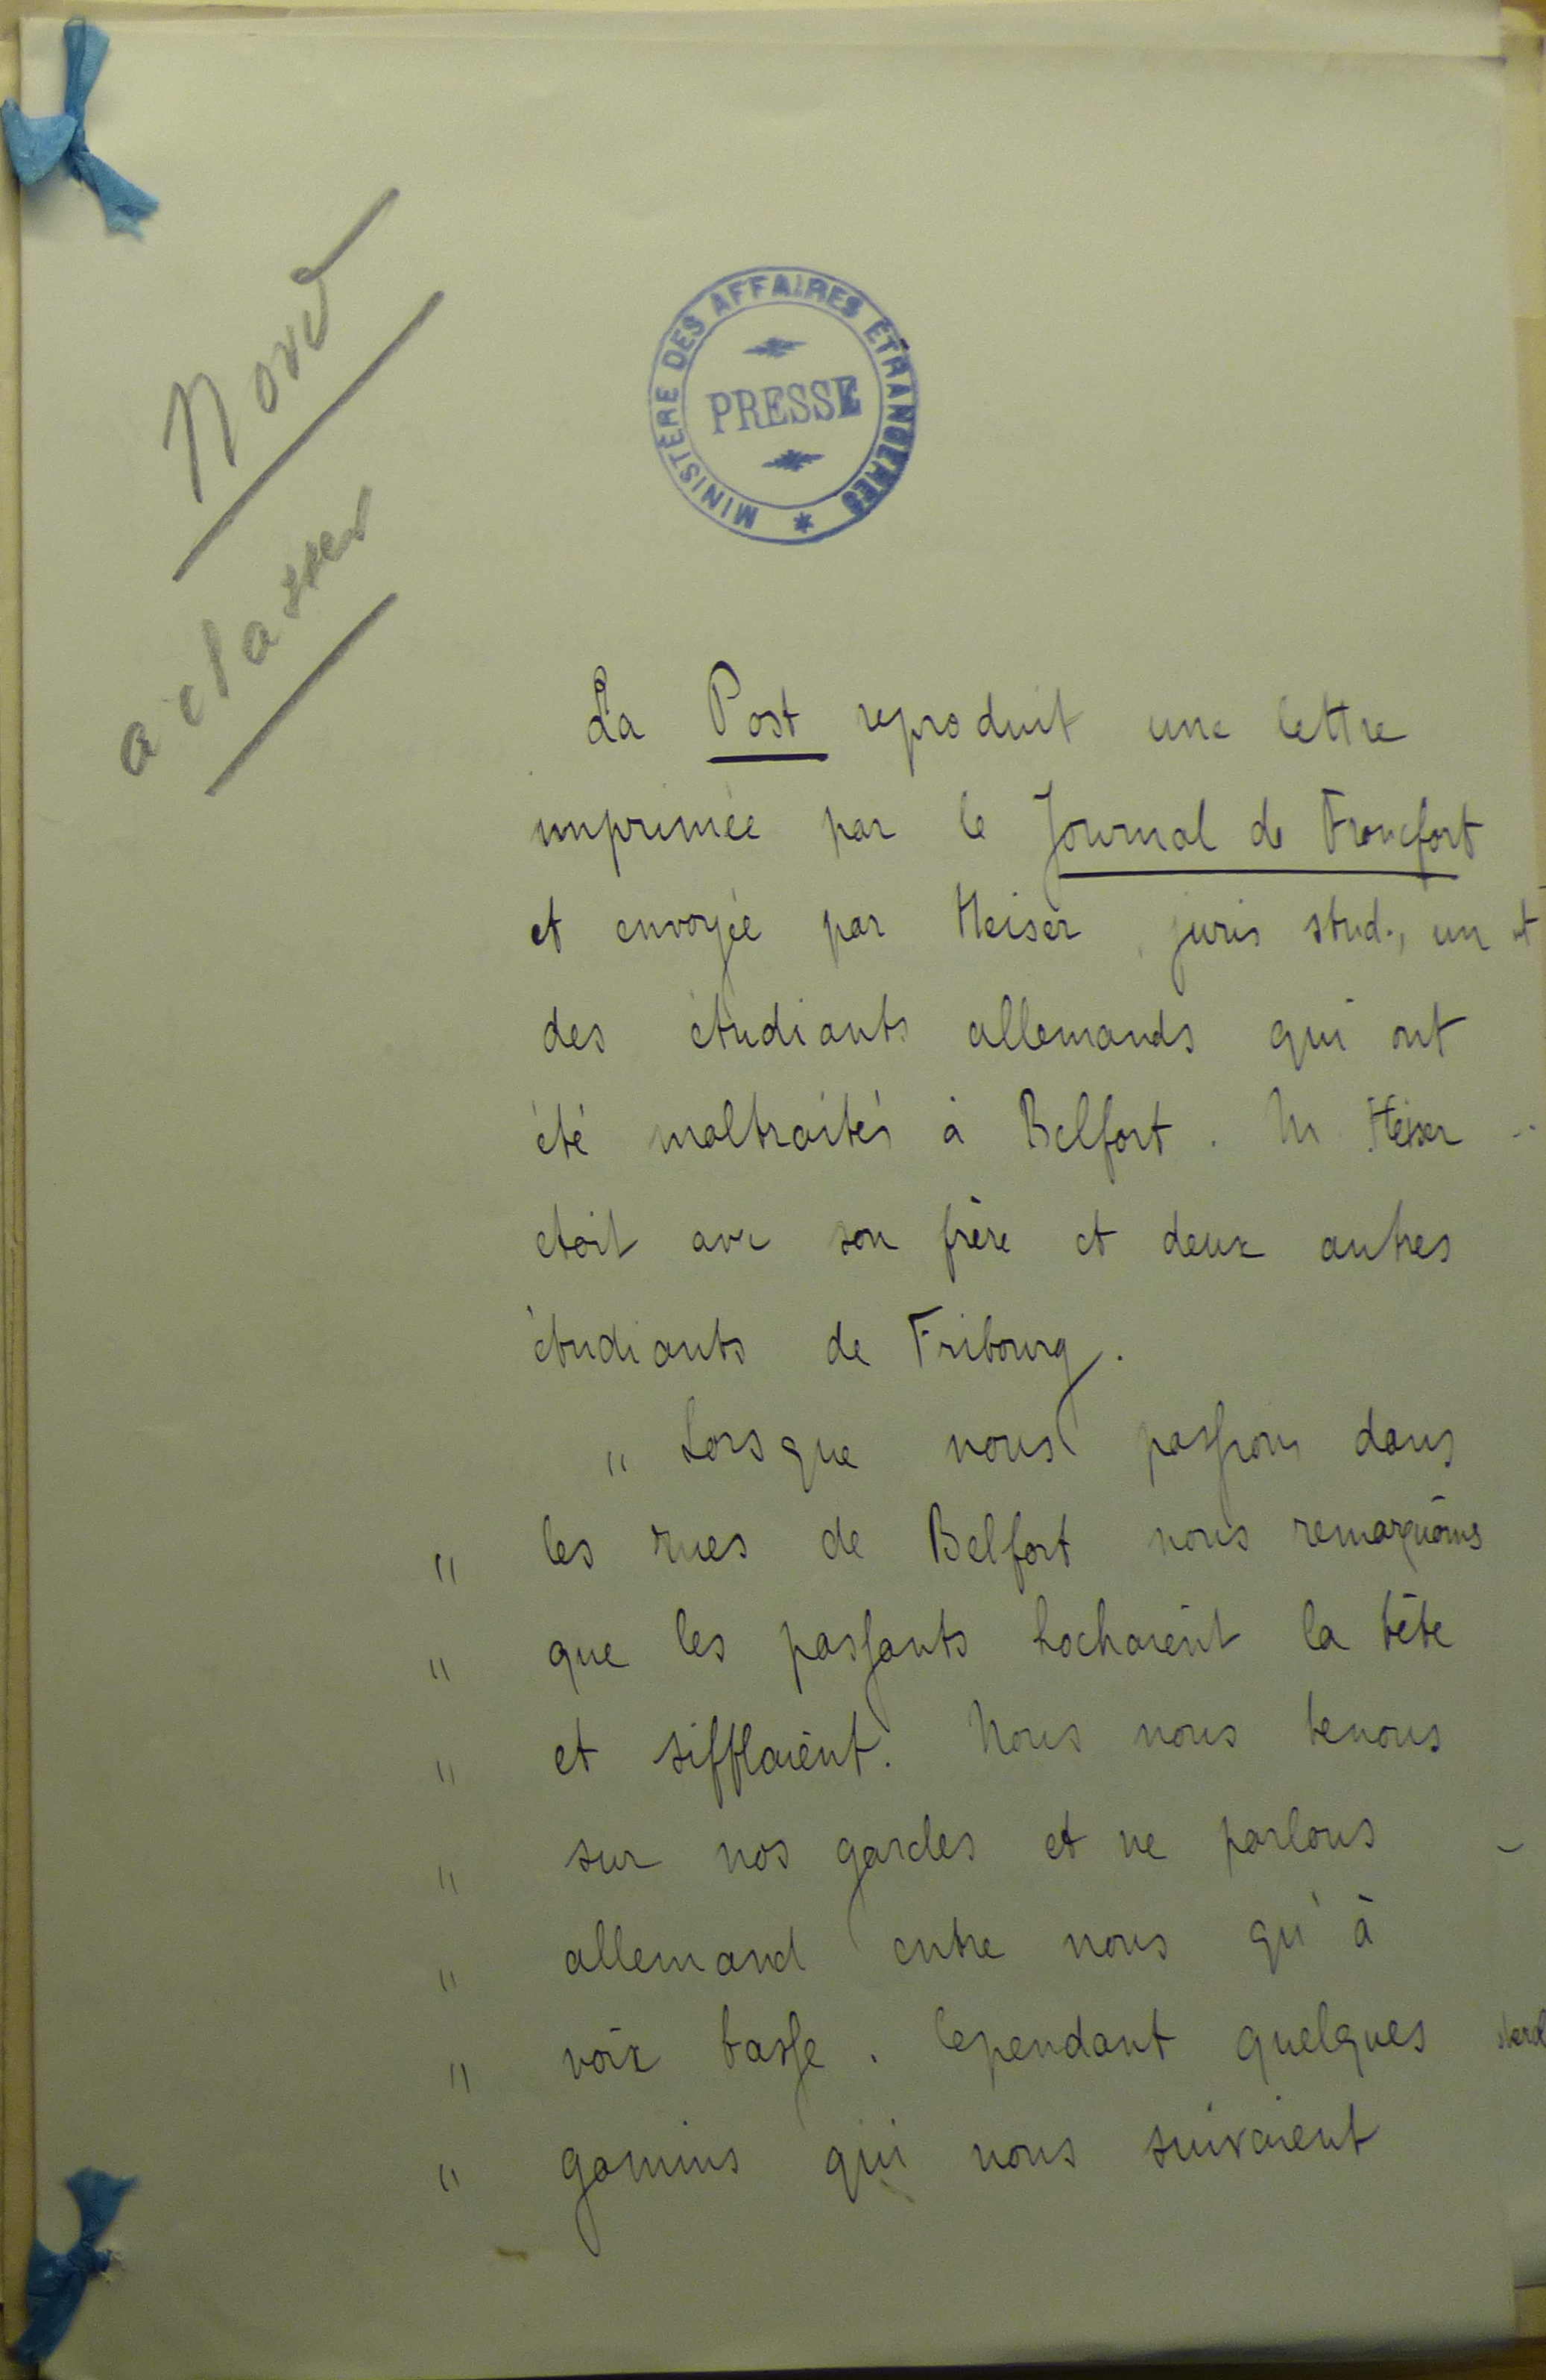 Nord
a classer
MINISTÈRE DES AFFAIRES ÉTRANGÈRES
PRESSE
La Post reproduit une lettre
imprimée par le Journal de Francfort
et envoyée par Heiser, juris stud., un
des étudiants allemands qui ont
été maltraités à Belfort. M. Heiser
etait avec son frère et deux autres
étudiants de Fribourg.
" Lorsque nous passions dans
" les rues de Belfort nous remarquâmes
" que les passants hochaient la tête
" et sifflaient. Nous nous tenons
" sur nos gardes et ne parlons
" allemand entre nous qu'à
" voix basse. Cependant quelques
" gamins qui nous suivaient